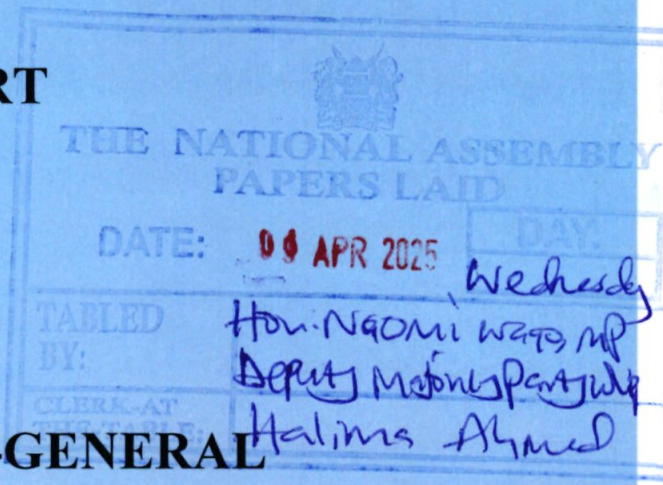 RT
THE NATIONAL ASSEMBLY
PAPERS LAID
DATE: 09 APR 2025 DAY.
Wednesday
TABLED BY: Hon. Naomi Waqo MP
Deputy Majority Party Whip
CLERK-AT THE-TABLE: Halima Ahmed
-GENERAL